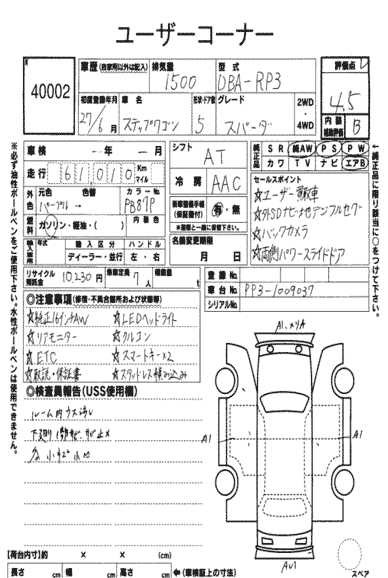 ユーザーコーナー
40002
車歴(自家用以外は記入) 排気量 型式
1500 DBA-RP3
評価点
4.5
初度登録年月 車名 形状・ドア数 グレード
27/6月 ステップワゴン 5 スパーダ
2WD
4WD
内装
補助評価 B
※必ず油性ボールペンをご使用下さい。水性ボールペンは使用できません。
車検 年 月
走行 61010 Km
マイル
シフト AT
冷房 AAC
純正品 SR 純AW PS PW
カワ TV ナビ エアB
←純正品に限り該当に○をつけて下さい。
外色 元色 色替 カラーNo.
パープル→ PB87P
燃料 ガソリン・軽油・( ) 内装色
整備手帳
(保証書付) 有・無
※週報と一緒に保管下さい。
セールスポイント
☆ユーザー買取車
☆外SDナビ 地デジ フルセグ
☆バックカメラ
☆両側パワースライドドア
輸入車 年式 輸入区分 ハンドル
ディーラー・並行 左・右
名義変更期限
月 日
リサイクル
預託金 10,230円
乗車定員 7人
積載量
登録No.
車台No. RP3-1009037
シリアルNo.
◎注意事項(修復・不具合個所および状態等)
☆純正16インチAW ☆LEDヘッドライト
☆リアモニター ☆クルコン
☆ETC ☆スマートキー×2
☆取説・保証書
◎検査員報告(USS使用欄)
ルーム内ウス汚レ
A1
A1
A1
【荷台内寸】約 × × (cm)
長さ cm 幅 cm 高さ cm ←(車検証上の寸法)
スペア